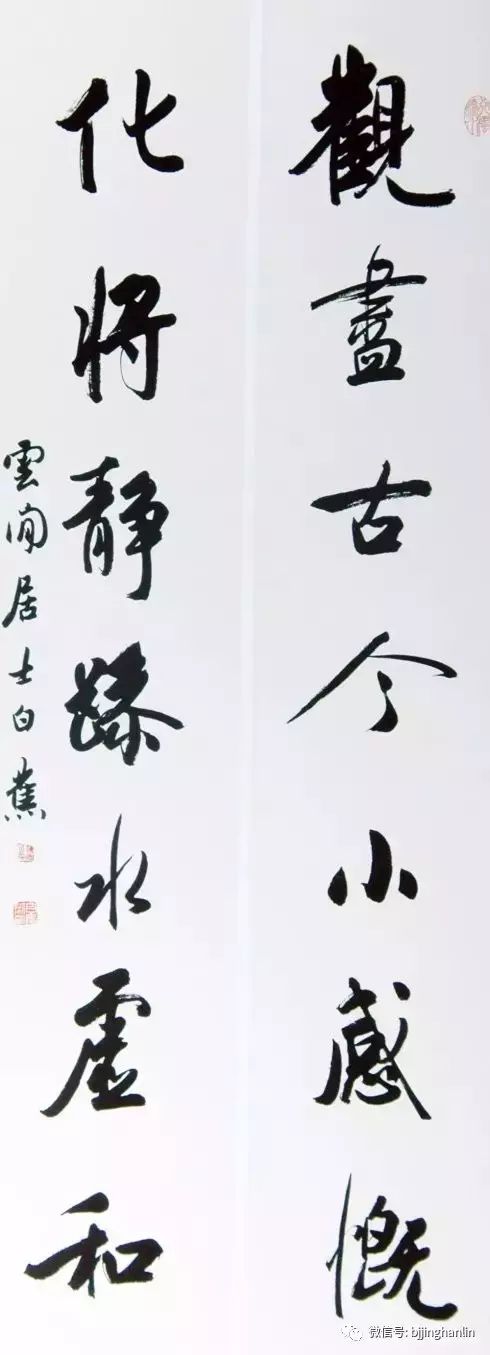 觀盡古今小感慨
化將靜躁水虛和
雲間居士白蕉
微信号: bjjinghanlin